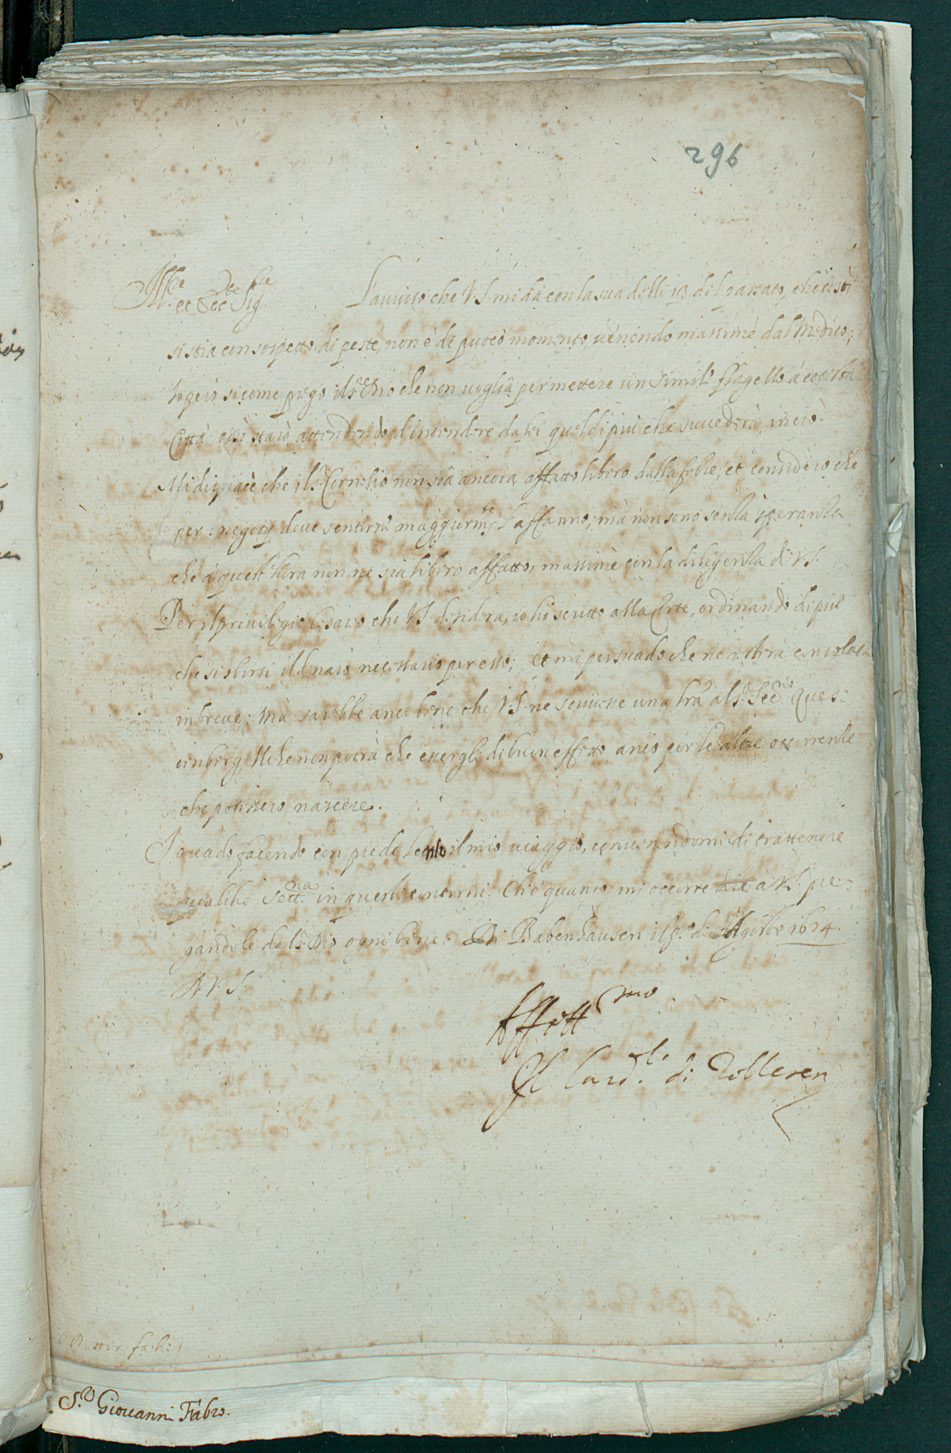 296
Ill.re et Ecc.te Sig.re L'auuiso che V.S. mi dà con la sua delli 13 del passato, che costì
si stia con sospetto di peste, non è di puoco momento uenendo massime dal Medico;
Io però sicome prego il S. Dio che non uoglia permettere un simil flagello à cotesta
Città, così starò attendendo d'intendere da lei quel di più che succederà in ciò.
Mi dispiace che il S. Cornelio non sia ancora affatto libero dalla febre, et considero che
per i negotij deue sentirne maggiorm.te l'affanno; mà non sono senza speranza
che à quest'hora non ne sia libero affatto, massime con la diligenza di V.S.
Per il priuilegio che V.S. desidera, io hò scritto alla Corte, ordinando di più
che si sborsi il denaro necessario per esso; et mi persuado che ne restarà consolata
in breue; ma sarebbe anco bene che V.S. ne scriuesse una l'ra al S.
che non potrà che essergli di buon effetto anco per le altre occorrenze
che potessero nascere.
Io uado facendo con piede lento il mio uiaggio, conuenendomi di trattenere
qualche sett.na in questi contorni. Che è quanto mi occorre dire à V.S. pre-
gandole da S. Dio ogni bene. Di Babenhausen il p.o di Agosto 1614
Di V.S.
Aff.mo
Il Card.le di Zolleren
S.r Giouanni Fabro.